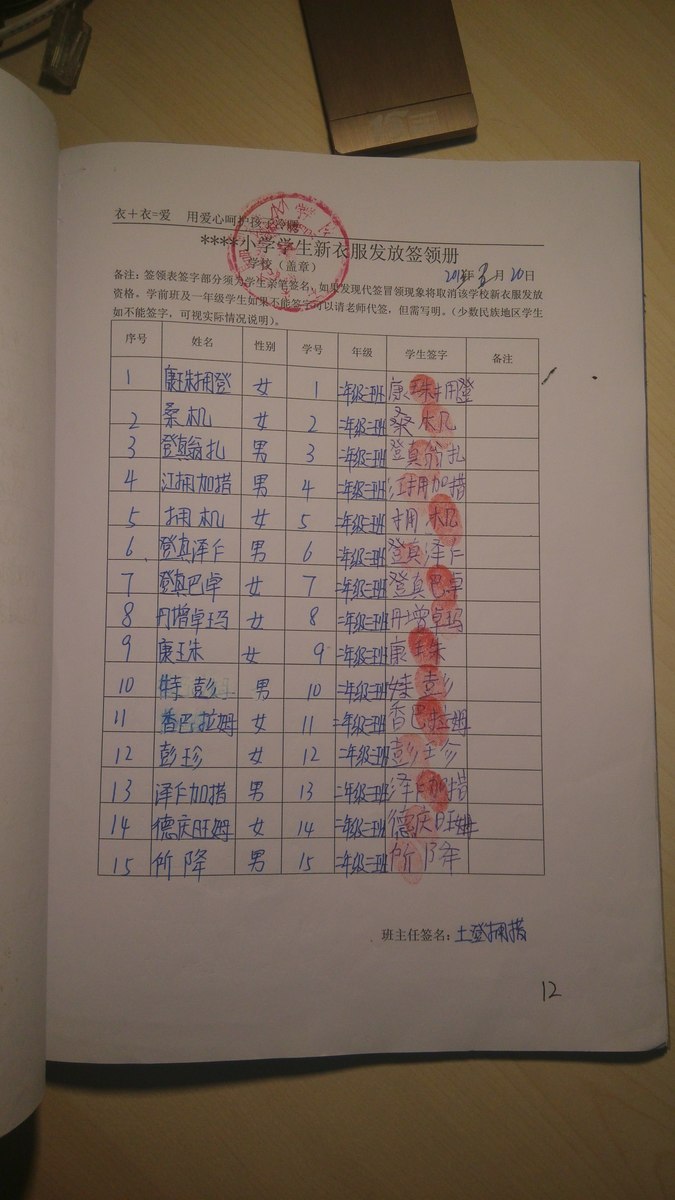 衣＋衣=爱 用爱心呵护孩子冷暖
****小学学生新衣服发放签领册
学校（盖章）
年 月 20日
备注：签领表签字部分须为学生亲笔签名，如果发现代签冒领现象将取消该学校新衣服发放
资格。学前班及一年级学生如果不能签字可以请老师代签，但需写明。（少数民族地区学生
如不能签字，可视实际情况说明）。
序号 姓名 性别 学号 年级 学生签字 备注
1 康珠拥登 女 1 二年级二班 康珠拥登
2 桑机 女 2 二年级二班 桑机
3 登真翁扎 男 3 二年级二班 登真翁扎
4 江拥加措 男 4 二年级二班 江拥加措
5 拥机 女 5 二年级二班 拥机
6 登真泽仁 男 6 二年级二班 登真泽仁
7 登真巴卓 女 7 二年级二班 登真巴卓
8 丹增卓玛 女 8 二年级二班 丹增卓玛
9 康珠 女 9 二年级二班 康珠
10 特彭 男 10 二年级二班 彭
11 香巴拉姆 女 11 二年级二班 香巴拉姆
12 彭珍 女 12 二年级二班 彭珍
13 泽仁加措 男 13 二年级二班 泽仁加措
14 德庆旺姆 女 14 二年级二班 德庆旺姆
15 所降 男 15 二年级二班 所降
班主任签名：土登拥措
12